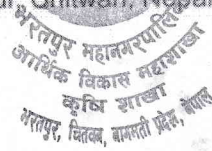 Chitwan, Nepal
भरतपुर महानगरपालिका
आर्थिक विकास महाशाखा
कृषि शाखा
भरतपुर, चितवन, बागमती प्रदेश, नेपाल